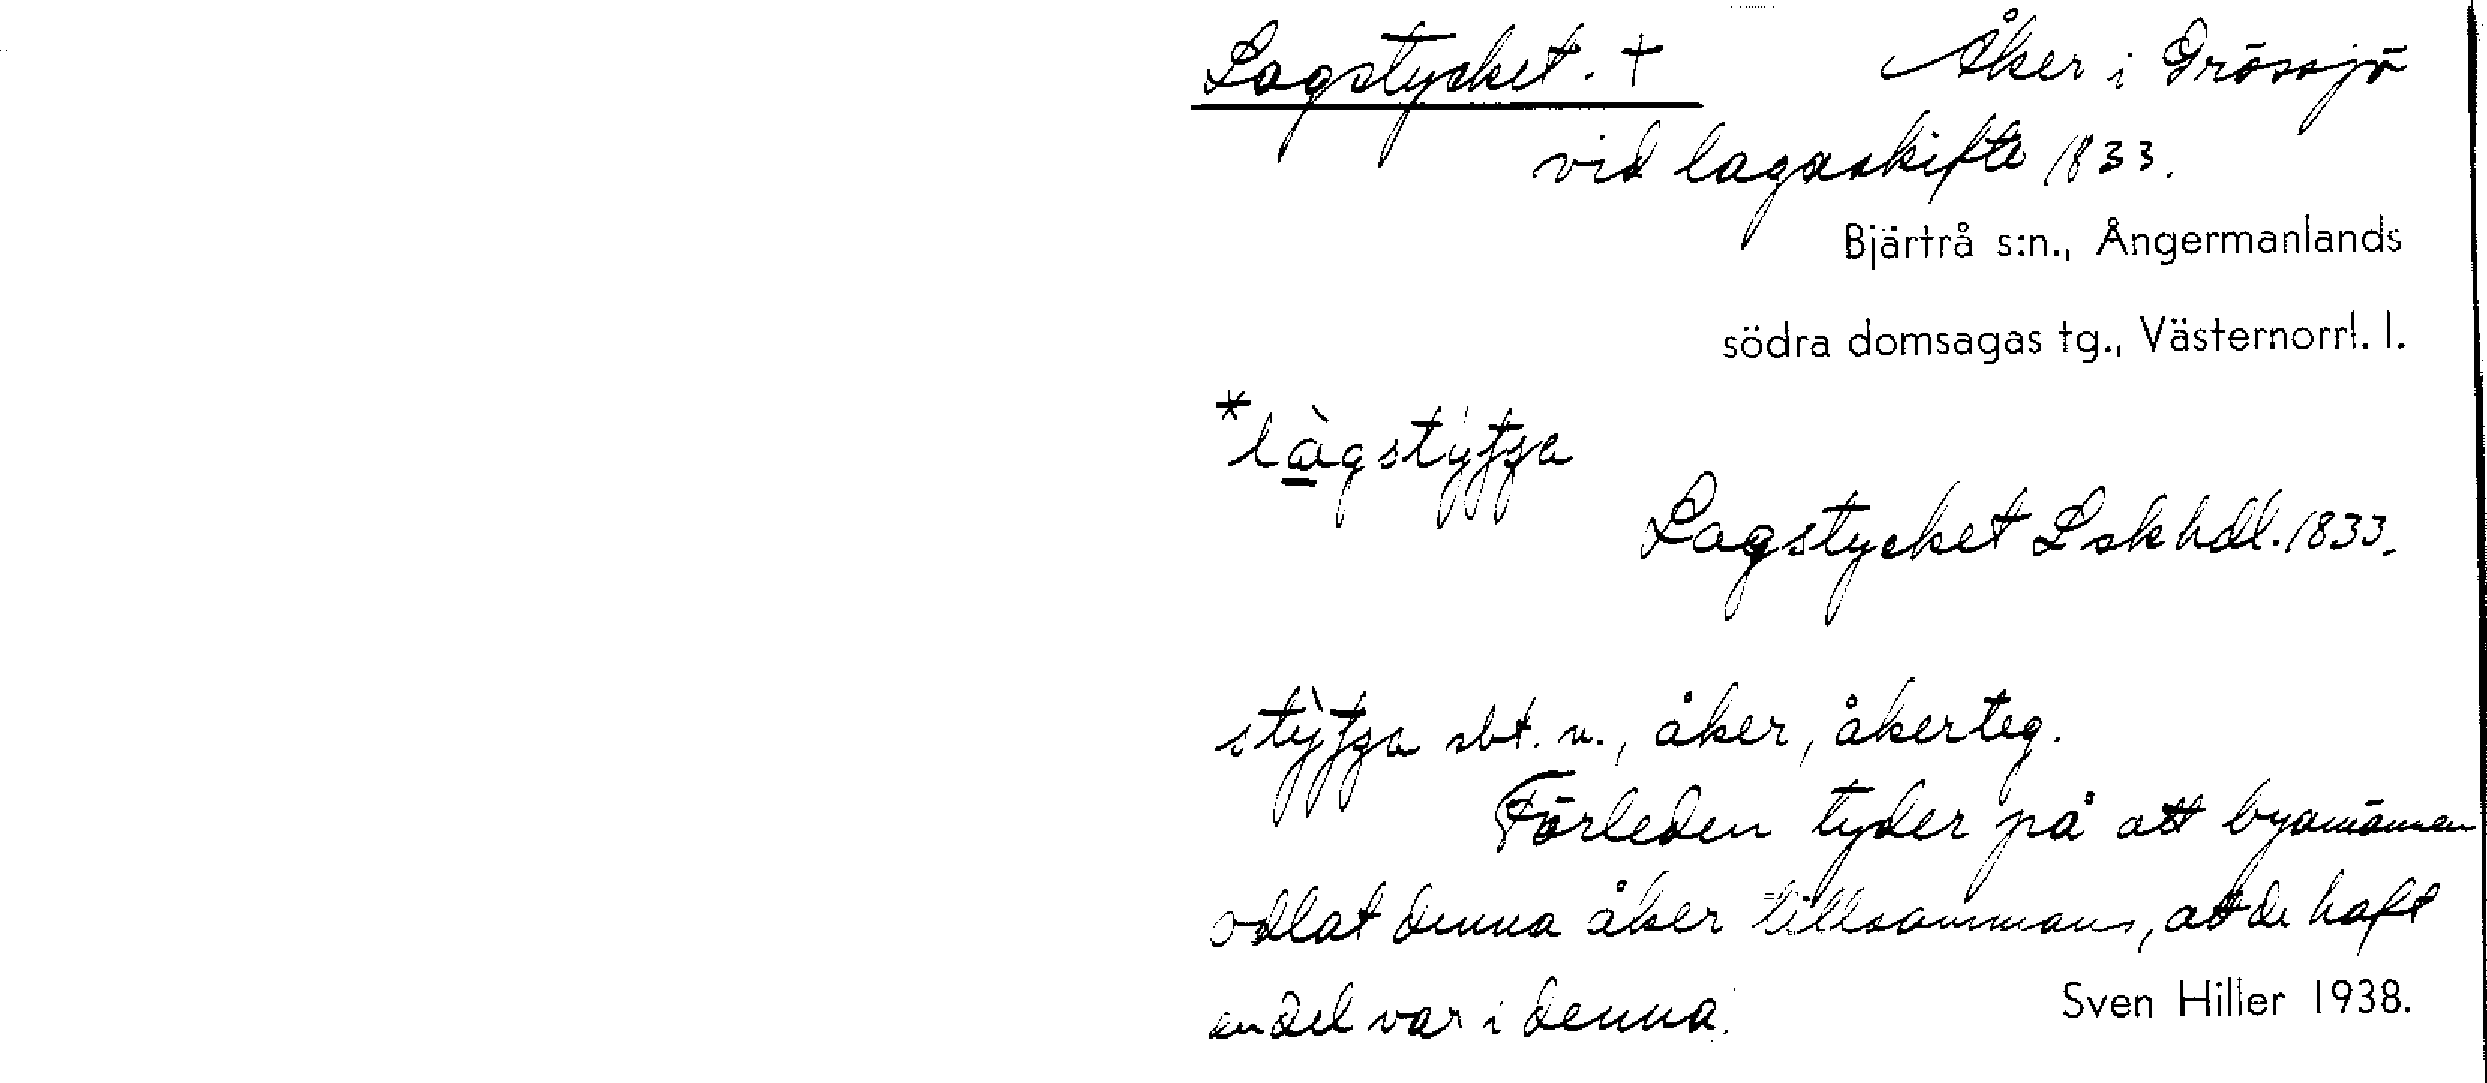 Lagstycket. † Åker i Grössjö
vid lagaskifte 1833.
Bjärtrå s:n., Ångermanlands
södra domsagas tg., Västernorrl. l.
*làgstýtʒa
Lagstycket Lskhdl. 1833.
stỳtʒa sbt. n., åker, åkerteg.
Förleden tyder på att byamännen
odlat denna åker tillsammans, att de haft
en del var i denna.
Sven Hiller 1938.